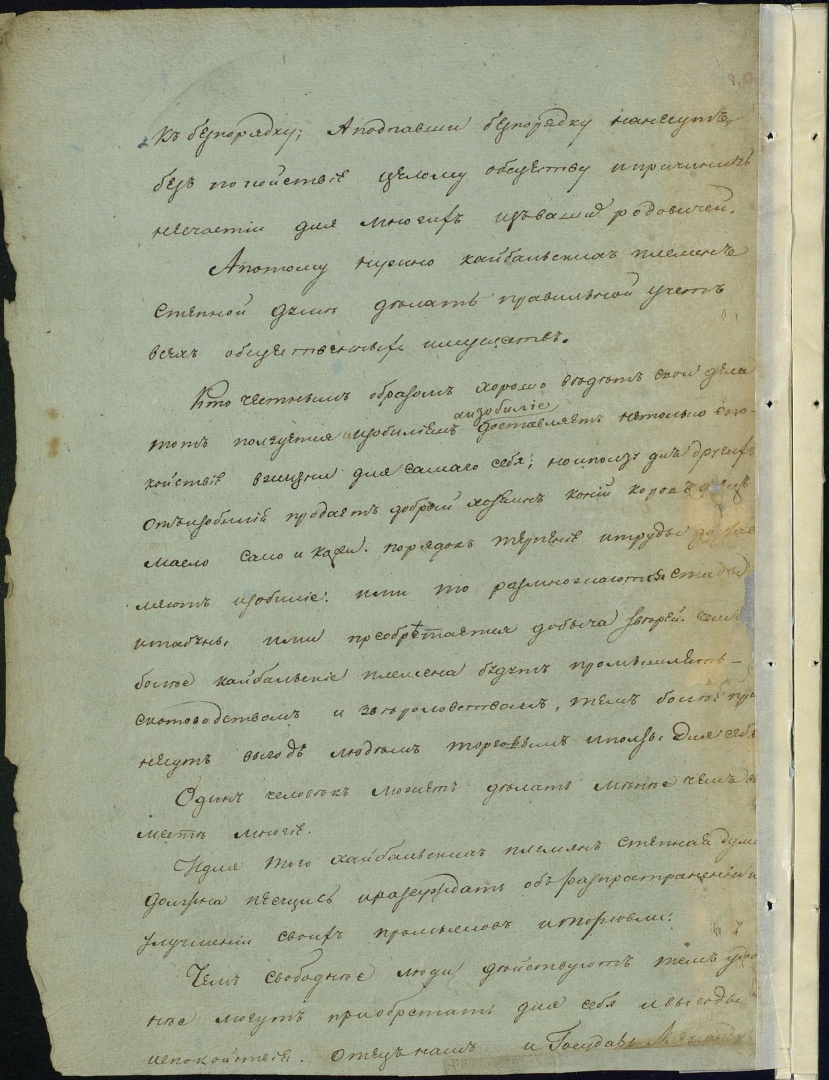 къ безпорядку; А подпавши безпорядку нанесутъ
безпокойствіе целому обществу и причинятъ
несчастіи для многихъ изъ вашихъ родовичей.
А потому нужно кайбальскихъ племенъ
степной думы дѣлать правильной учетъ
всехъ общественныхъ имуществъ.
Кто честнымъ образомъ хорошо ведетъ свои дела
тотъ пользуется изобиліемъ, а изобиліе доставляетъ нетолько спо-
койствіе в жизни для самаго себя; но и ползу для другихъ
отъ изобилія продаетъ добрый хозяинъ коній коровъ
масло сало и кожи. порядокъ терпеніе и труды
ляютъ изобиліе: или то размножаются стада
и табуны или преобрѣтается добыча зверей. чемъ
более кайбальскіе племена будутъ промышлять
скотоводствомъ и звѣроловствомъ, тѣмъ более при
несутъ выгодъ людямъ торговымъ и ползы для себя
Одинъ человѣкъ можетъ дѣлать мѣнее чемъ в
месте многіе.
И для того кайбальскихъ племянъ степная дума
должна пещись и разсуждать объ разпространеніи и
улучшеніи своихъ промысловъ и торговли:
Чемъ свободнѣе люди дѣйствуютъ темъ удоб
нѣе могутъ приобрѣтать для себя и выгоды
и спокойствія. отецъ нашъ и Государь